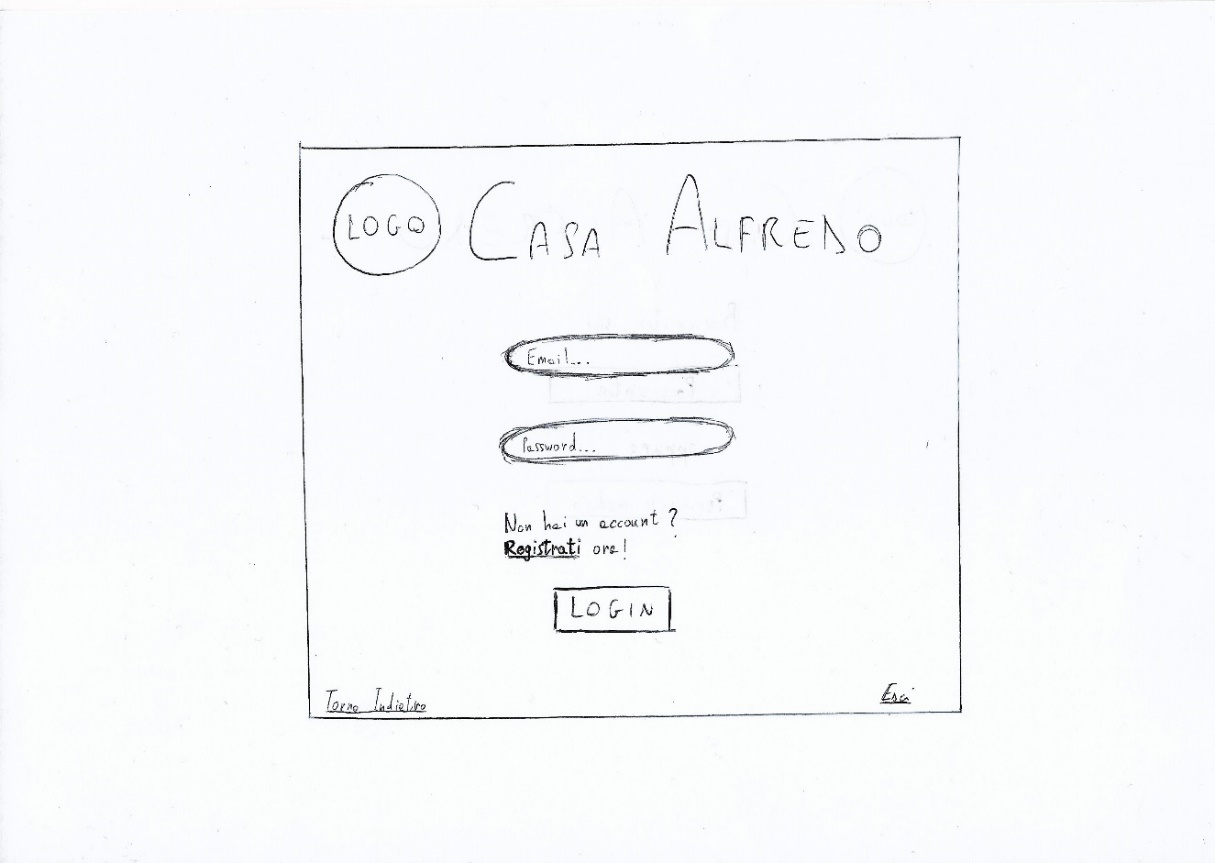 LOGO CASA ALFREDO
Email...
Password...
Non hai un account?
Registrati ora!
LOGIN
Torna Indietro Esci